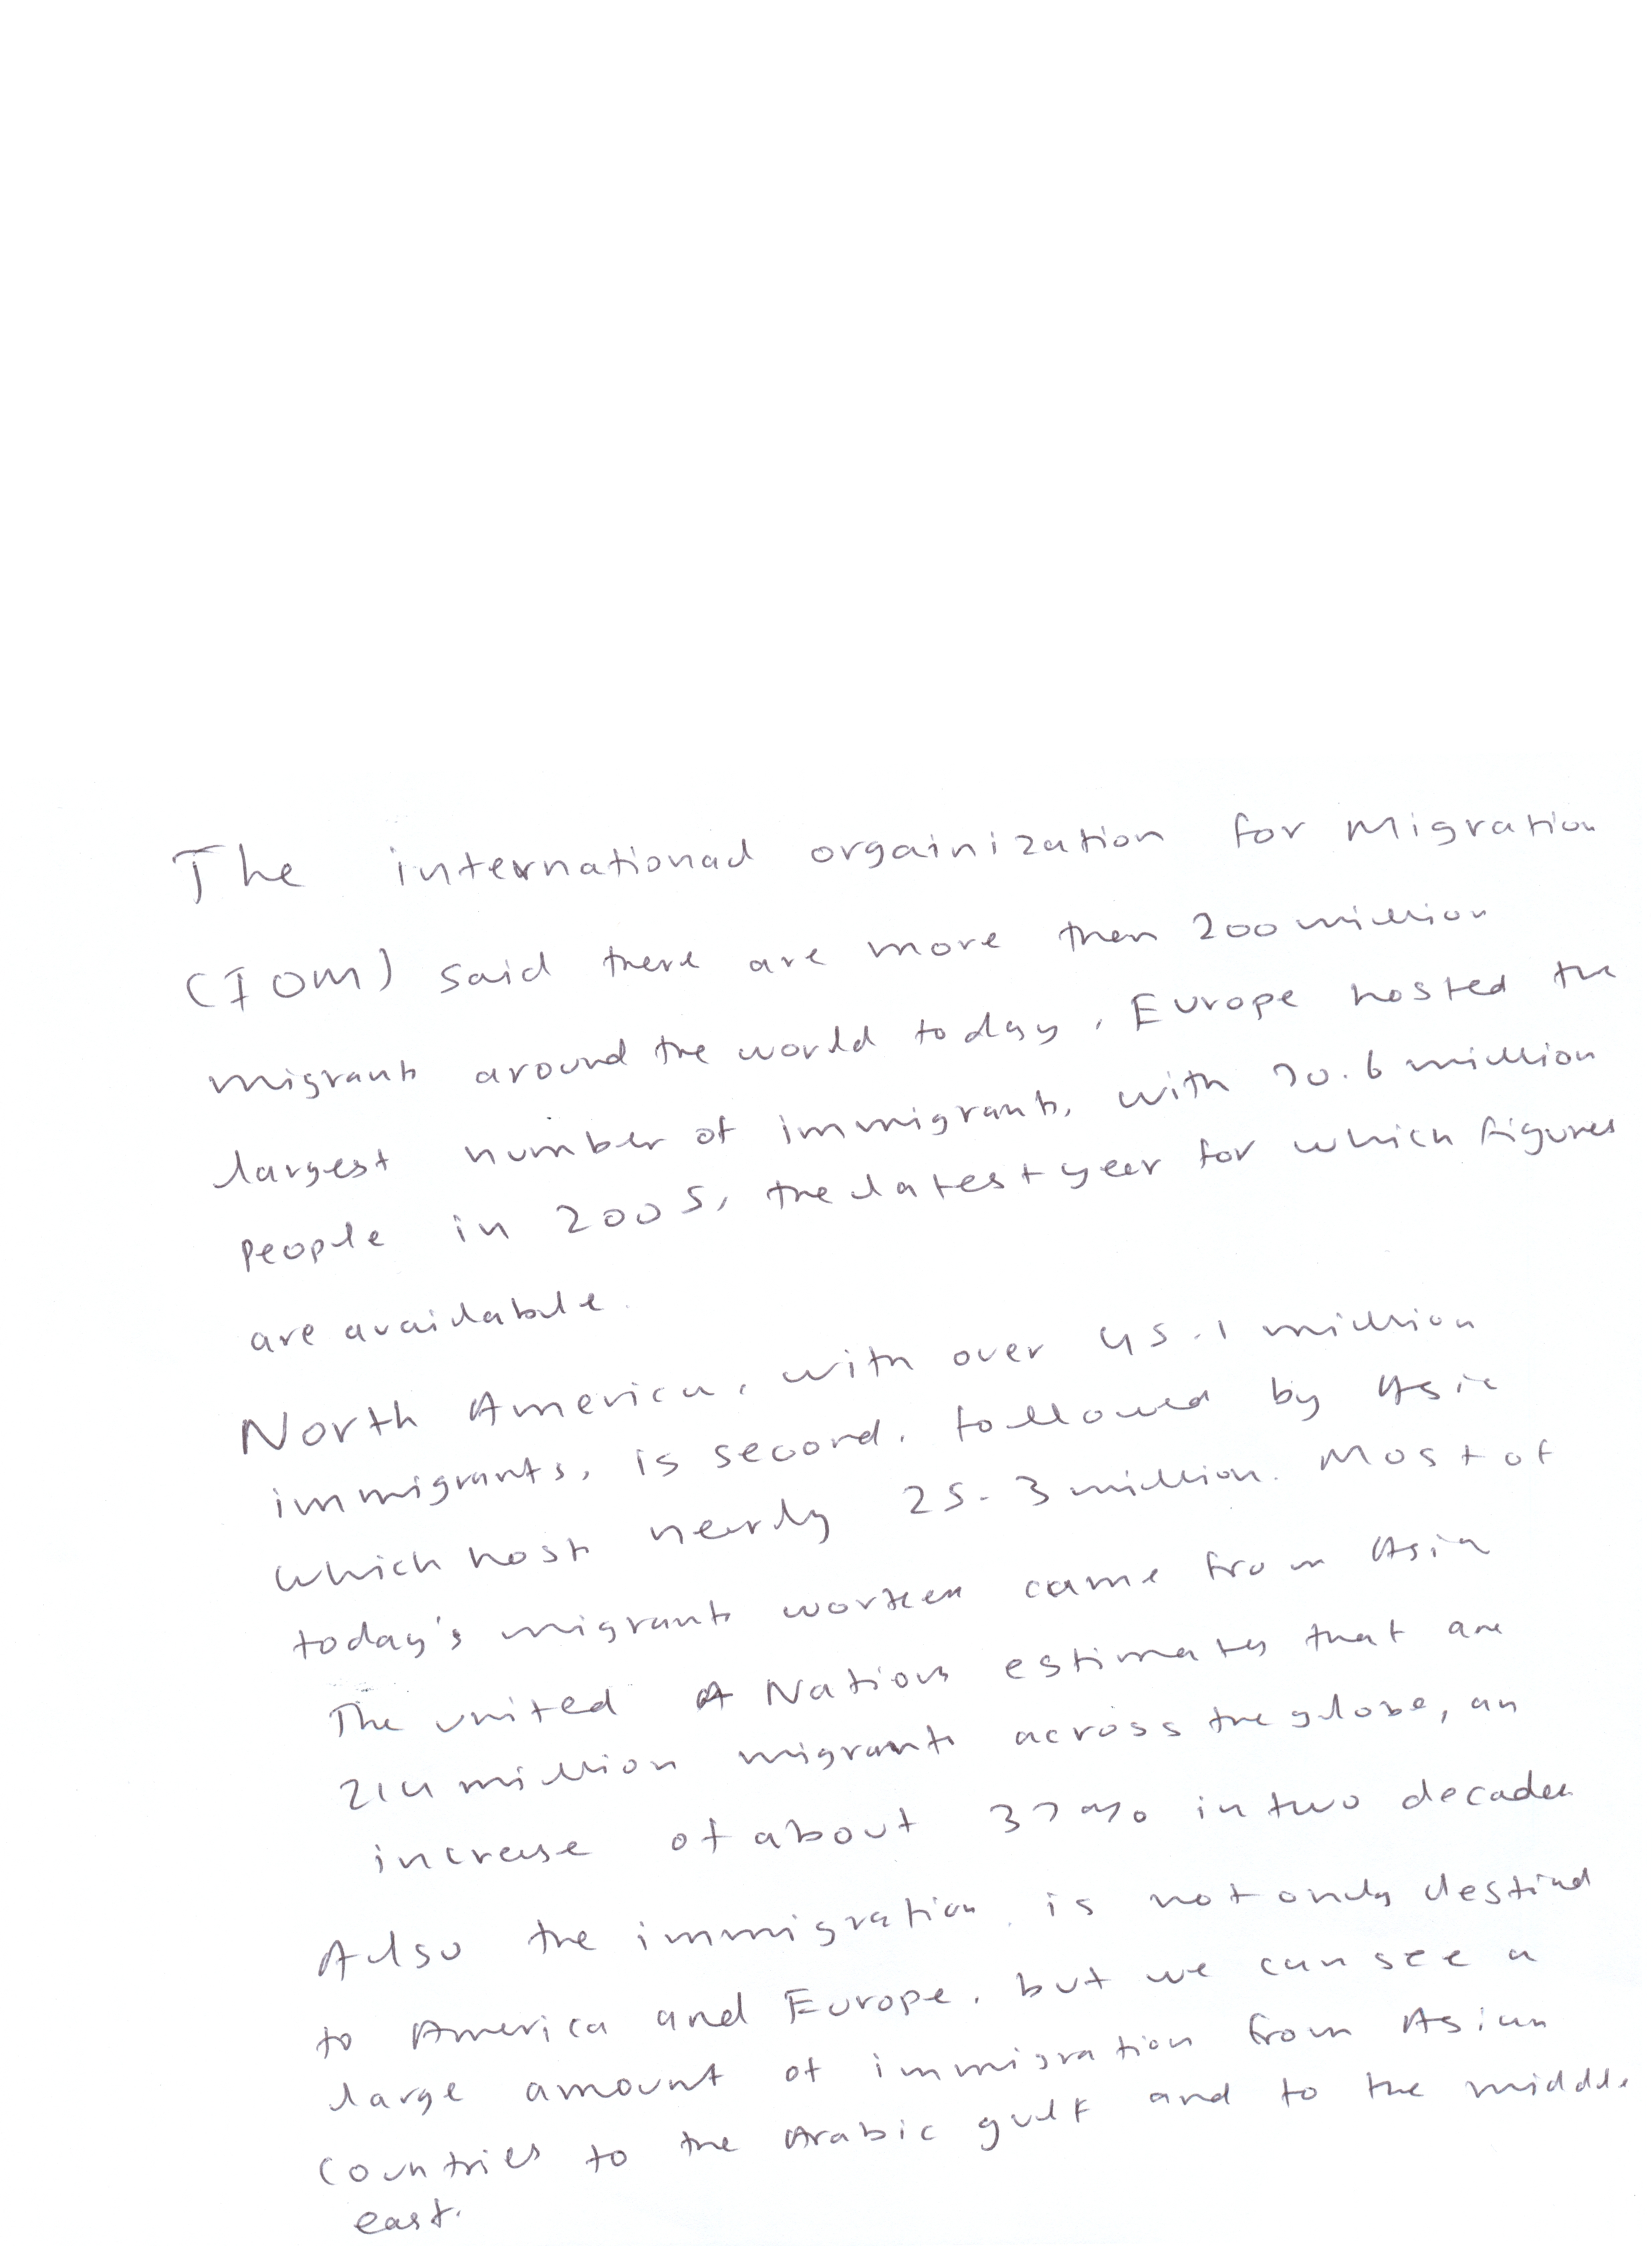 The international orgainization for Migration
(IOM) said there are more then 200 million
migrants around the world today, Europe hosted the
largest number of immigrants, with 70.6 million
people in 2005, the latest year for which figures
are available.
North America, with over 45.1 million
immigrants, is second, followed by Asia
which host nearly 25.3 million. Most of
today's migrants workers came from Asia
The united Nations estimates that are
214 million migrants across the globe, an
increase of about 37% in two decades
Also the immigration is not only destind
to America and Europe, but we can see a
large amount of immigration from Asian
countries to the Arabic gulf and to the middle
east.